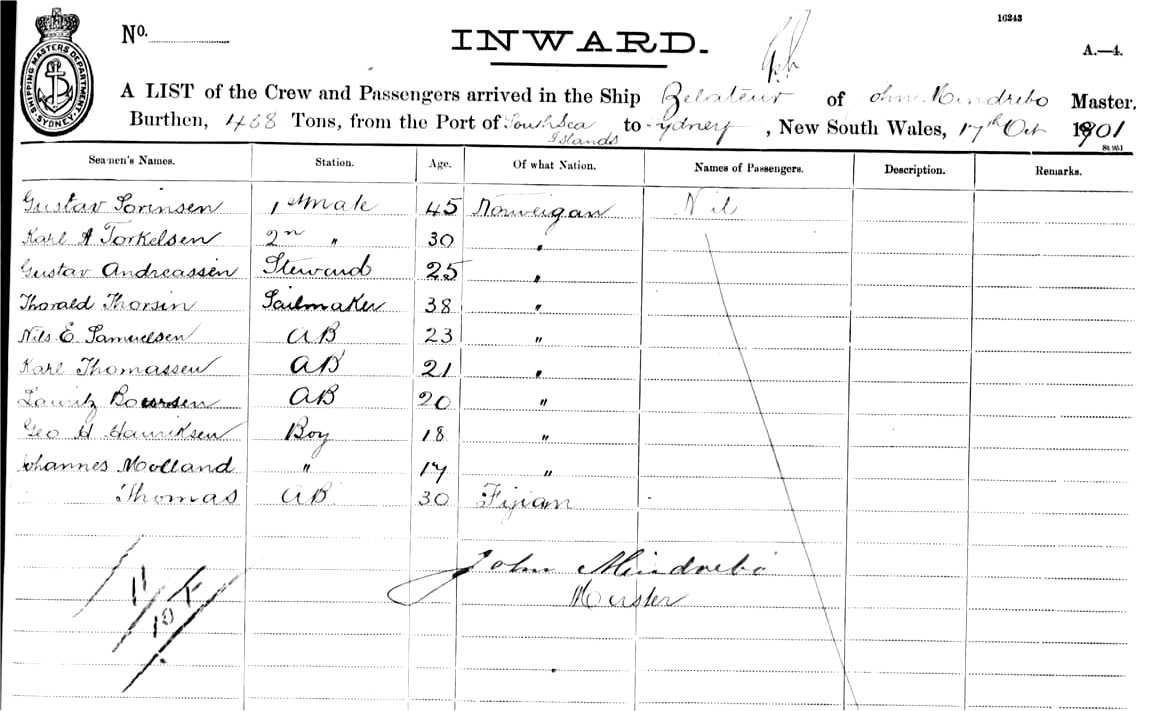 SHIPPING MASTERS DEPARTMENT SYDNEY
16243
No.
INWARD.
A.—4.
A LIST of the Crew and Passengers arrived in the Ship Zelateur of John Mindrebo Master,
Burthen, 468 Tons, from the Port of South Sea Islands to Sydney, New South Wales, 17th Oct 1901
Seamen's Names. Station. Age. Of what Nation. Names of Passengers. Description. Remarks.
Gustav Sorinsen 1st Mate 45 Norweigan Nil
Karl A Torkelsen 2n " 30 "
Gustav Andreassen Steward 25 "
Thorald Thorsin Sailmaker 38 "
Nils E. Samuelsen AB 23 "
Karl Thomassen AB 21 "
Lauritz AB 20 "
Geo H Hanriksen Boy 18 "
Johannes Molland " 17 "
Thomas AB 30 Fijian
John Mindrebö
Master
11
10